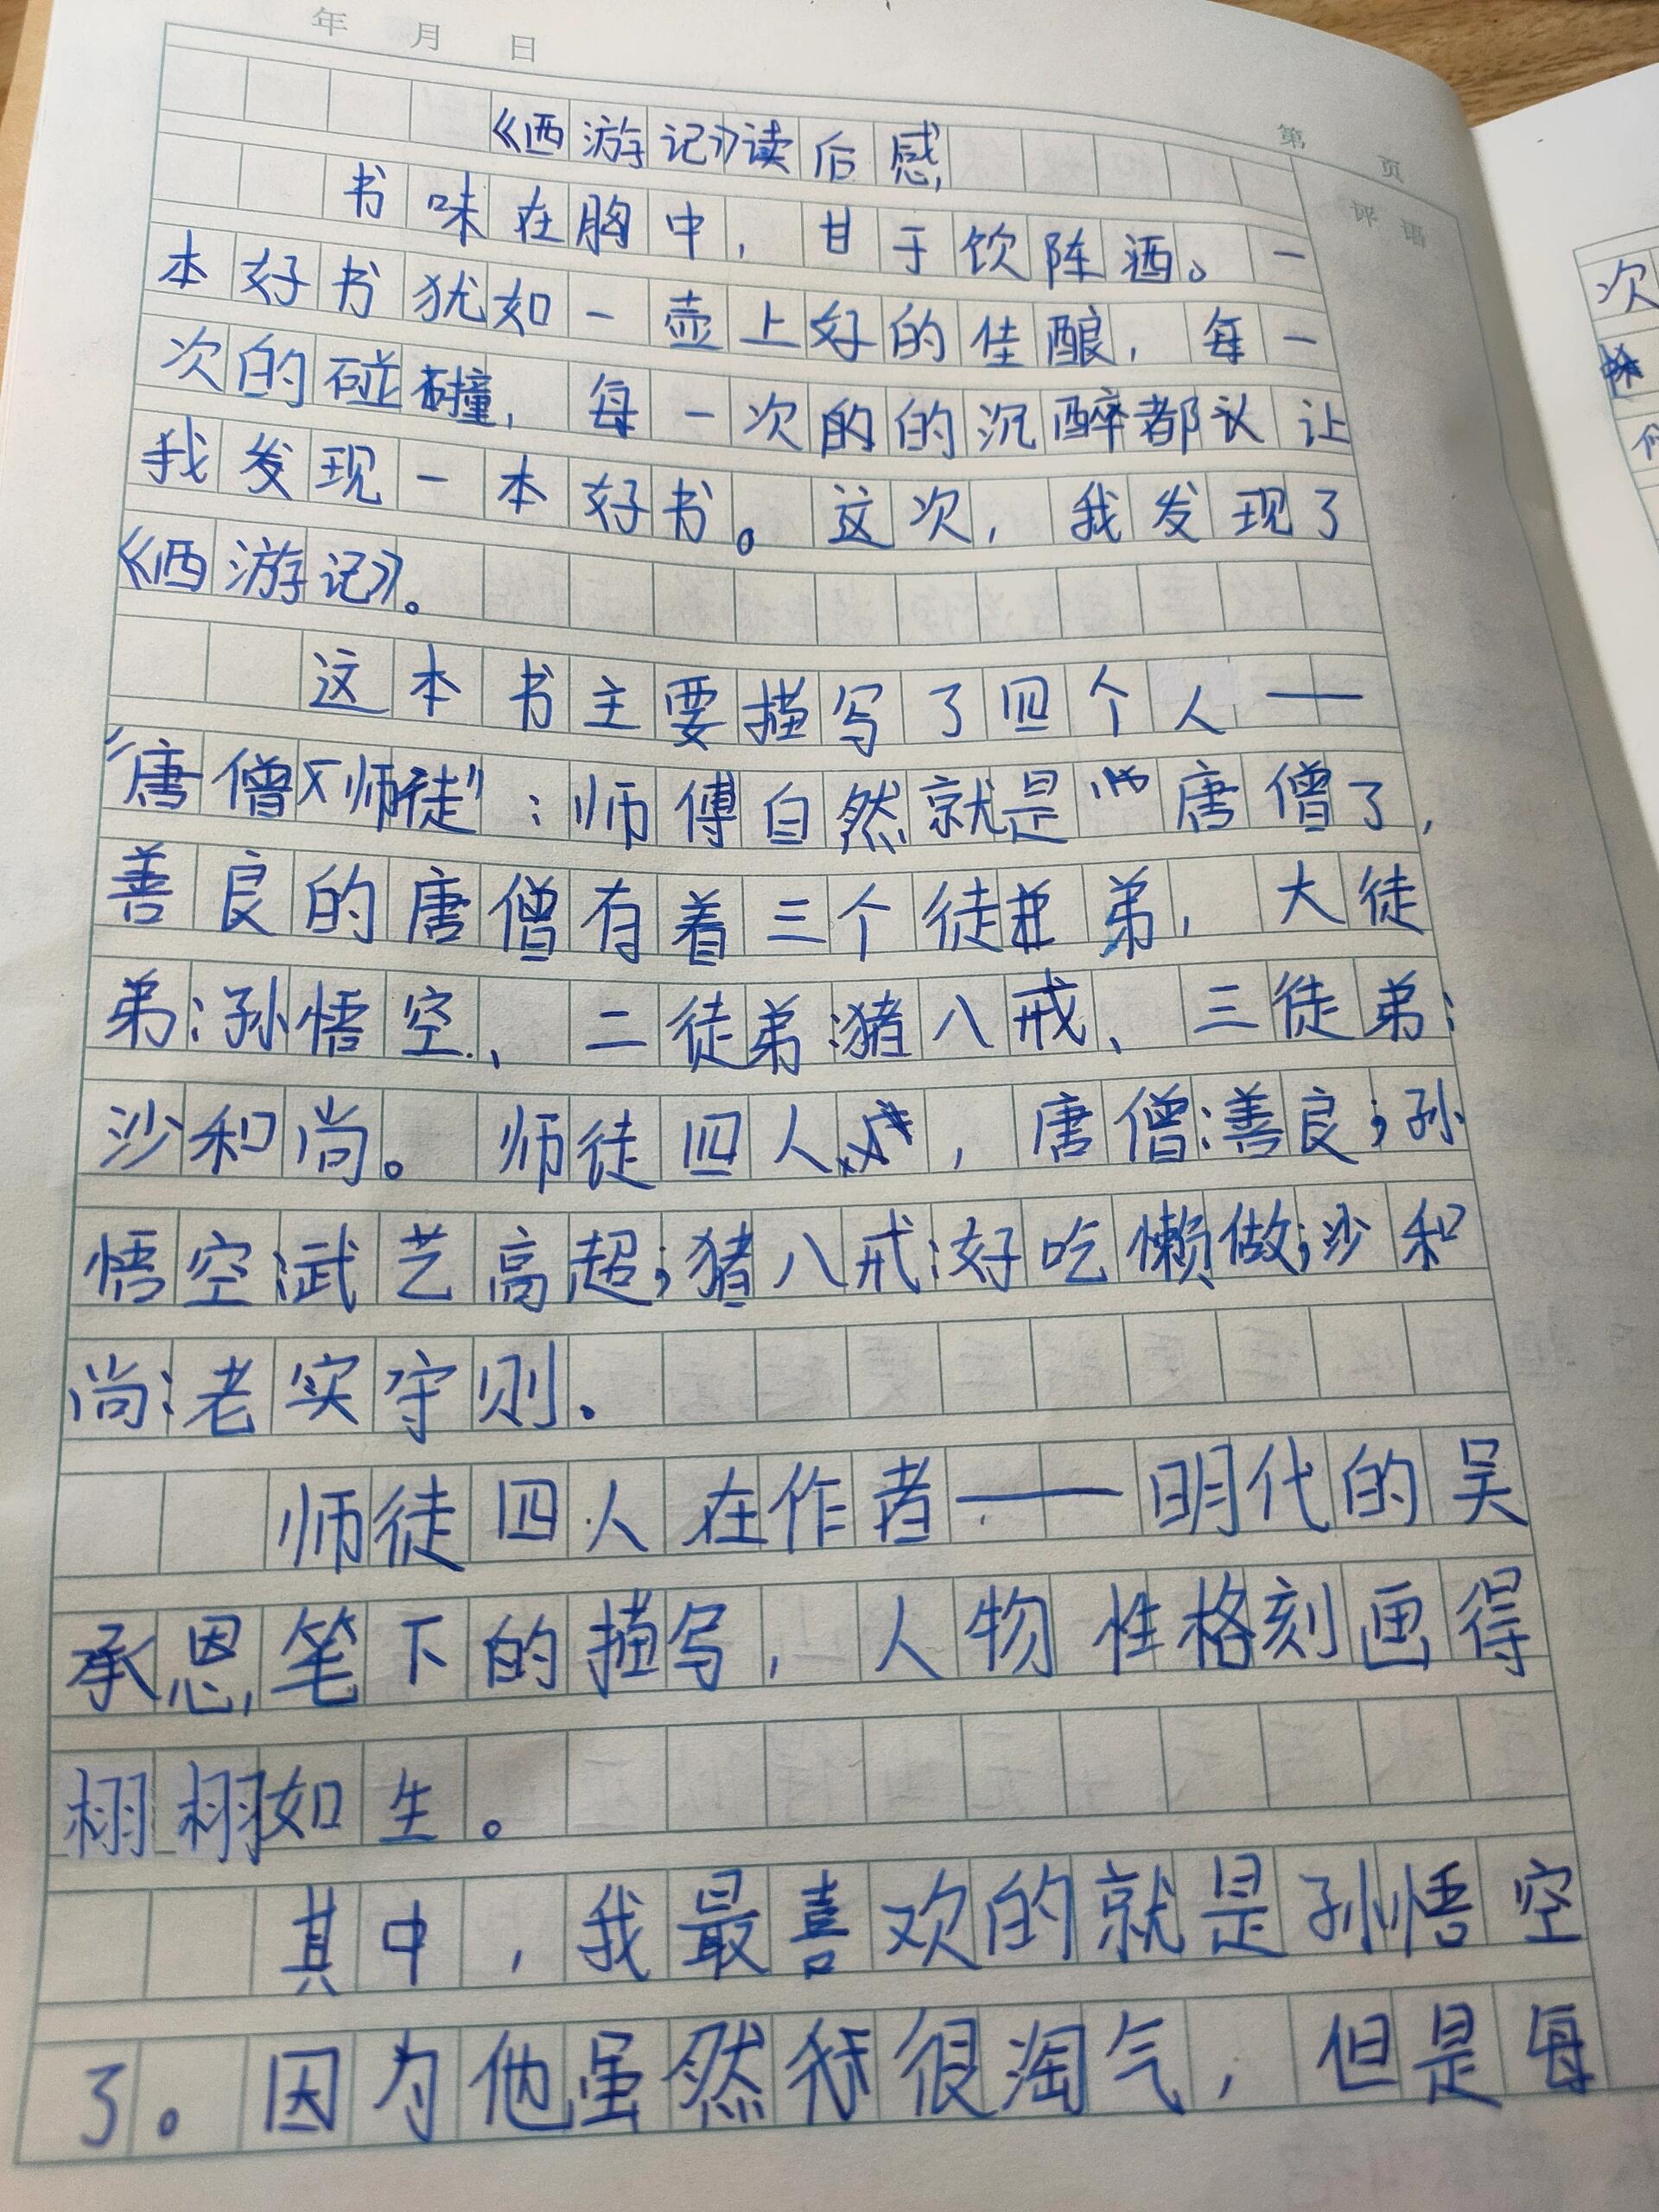 年 月 日
第 页
评语
《西游记》读后感
书味在胸中，甘于饮陈酒。一
本好书犹如一壶上好的佳酿，每一
次的碰撞，每一次的的沉醉都让
我发现一本好书。这次，我发现了
《西游记》。
这本书主要描写了四个人——
“唐僧师徒”：师傅自然就是唐僧了，
善良的唐僧有着三个徒弟，大徒
弟：孙悟空、二徒弟：猪八戒、三徒弟：
沙和尚。师徒四人，唐僧：善良；孙
悟空：武艺高超；猪八戒：好吃懒做；沙和
尚：老实守则。
师徒四人在作者——明代的吴
承恩笔下的描写，人物性格刻画得
栩栩如生。
其中，我最喜欢的就是孙悟空
了。因为他虽然很淘气，但是每
次